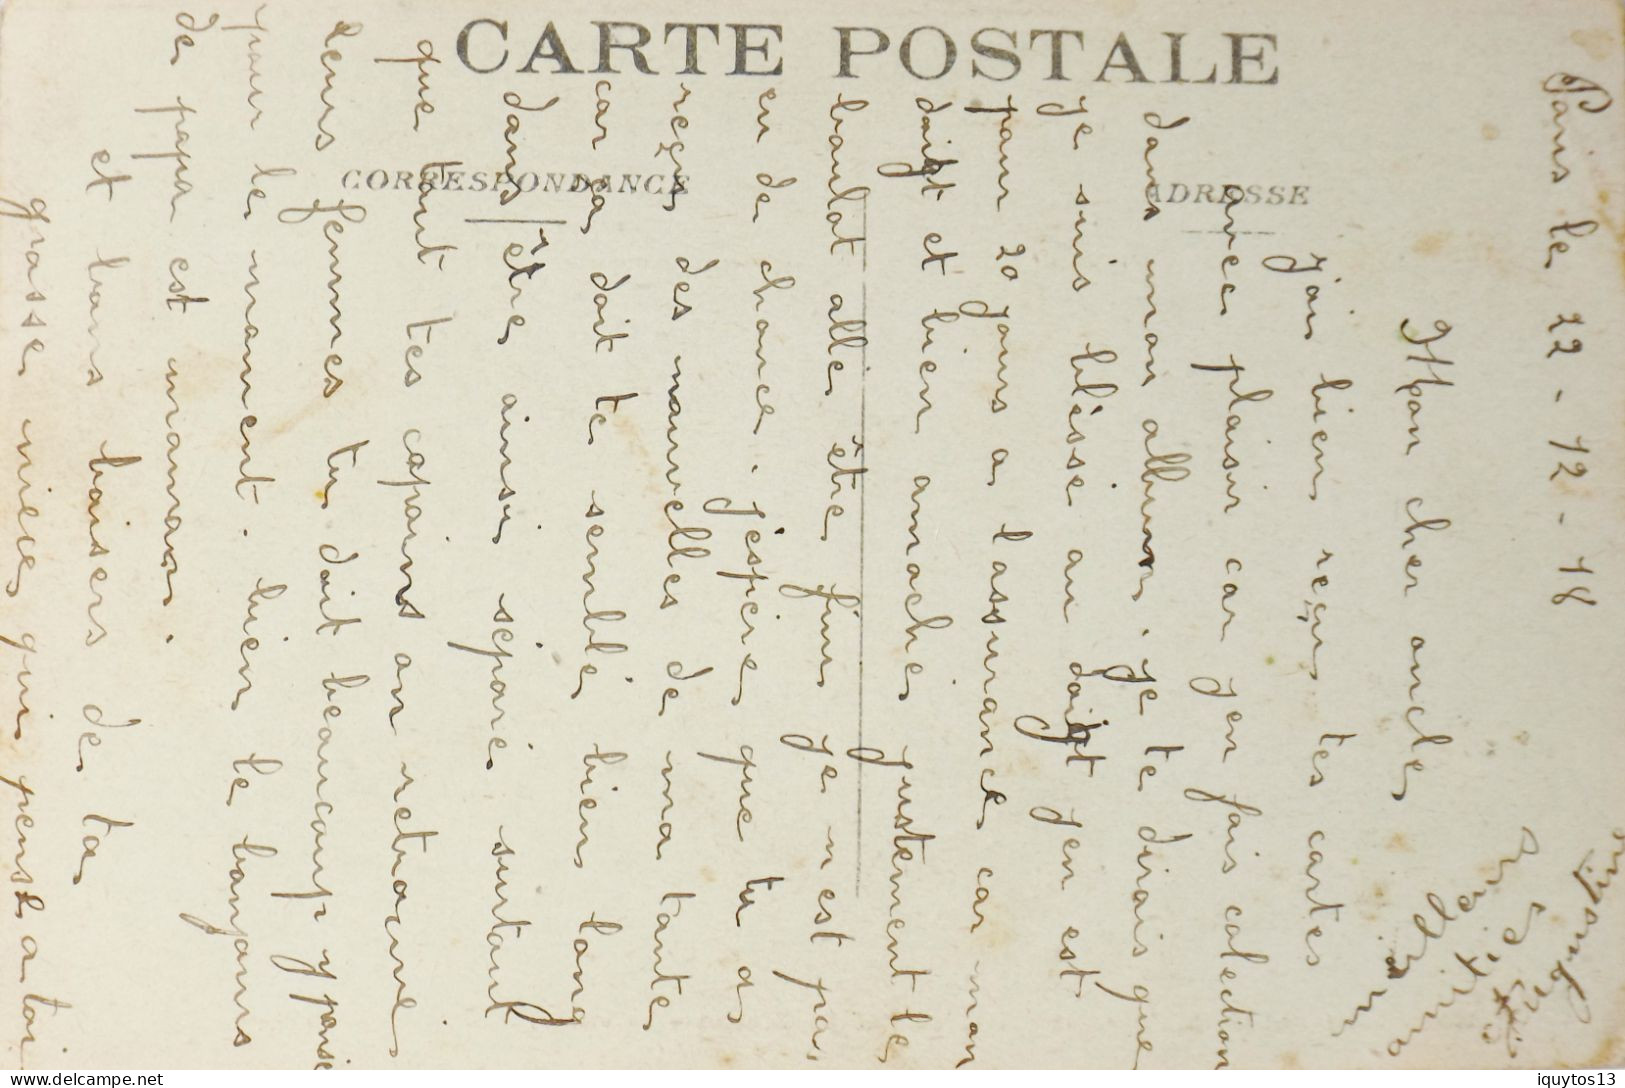 CARTE POSTALE
CORRESPONDANCE
ADRESSE
Paris le 22-12-18
Mon cher oncle
j'ai bien reçu tes cartes
avec plaisir car j'en fais colection
dans mon album. je te dirais que
je suis blèssé au doigt j'en est
pour 20 jours a l'assurance car mon
doigt et bien amoché justement le
boulot alle être fini je n'est pas
eu de chance. j'éspère que tu as
reçu des nouvelles de ma tante
car ça doit te semblé bien long
dans être ainsi séparé surtout
que tout tes copains on retrouvé
leurs femmes tu doit beaucoup y pensé
pour le moment. bien le bonjours
de papa est maman.
et bons baisers de ta
grosse nièce qui pense a toi
delcampe.net
iquytos13